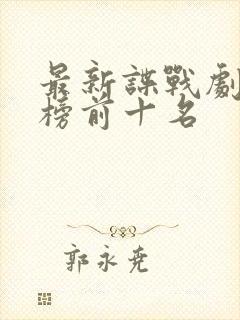 最新諜戰劇
榜前十名
郭永尧